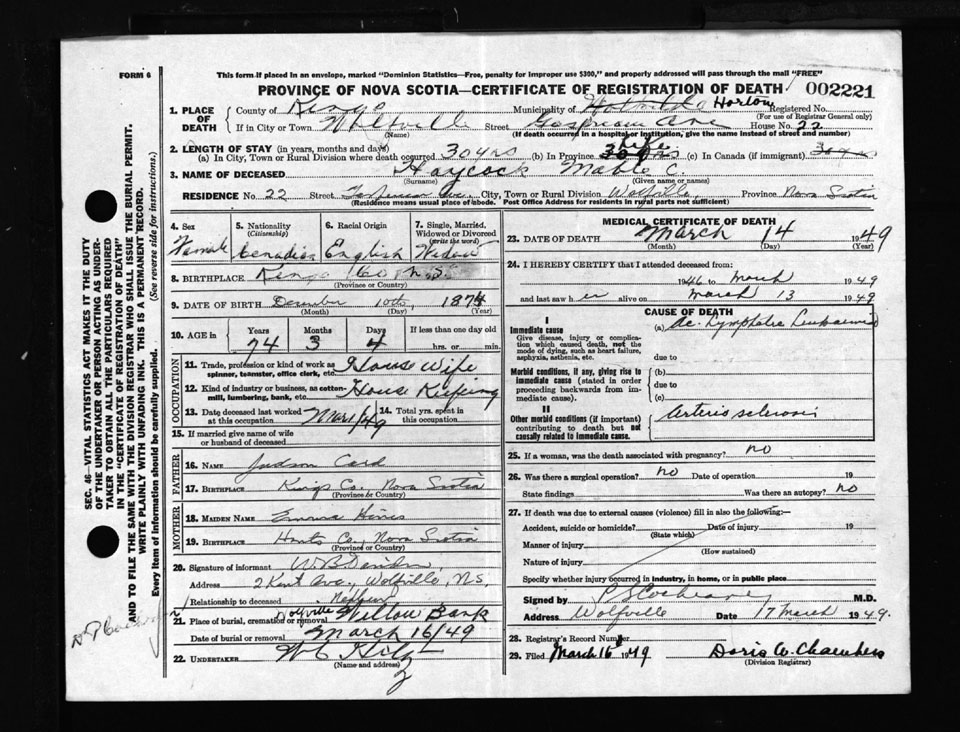 FORM 6
This form if placed in an envelope, marked "Dominion Statistics—Free, penalty for improper use $300," and properly addressed will pass through the mail "FREE"
PROVINCE OF NOVA SCOTIA—CERTIFICATE OF REGISTRATION OF DEATH 002221
1. PLACE OF DEATH
County of Kings Municipality of Horton Registered No.
(For use of Registrar General only)
If in City or Town Wolfville Street Gaspereau Ave House No. 22
(Name) (If death occurred in a hospital or institution, give the name instead of street and number)
2. LENGTH OF STAY (in years, months and days) Life
(a) In City, Town or Rural Division where death occurred 30 yrs (b) In Province (c) In Canada (if immigrant) 30 yrs
3. NAME OF DECEASED Haycock Mable C.
(Surname) (Given name or names)
RESIDENCE No. 22 Street Gaspereau Ave. City, Town or Rural Division Wolfville Province Nova Scotia
(Residence means usual place of abode. Post Office Address for residents in rural parts not sufficient)
4. Sex Female
5. Nationality (Citizenship) Canadian
6. Racial Origin English
7. Single, Married, Widowed or Divorced (write the word) Widow
8. BIRTHPLACE Kings Co. N.S.
(Province or Country)
9. DATE OF BIRTH December 10th 1874
(Month) (Day) (Year)
10. AGE in Years Months Days If less than one day old
74 3 4 hrs. or min.
OCCUPATION
11. Trade, profession or kind of work as spinner, teamster, office clerk, etc. House Wife
12. Kind of industry or business, as cotton-mill, lumbering, bank, etc. House Keeping
13. Date deceased last worked at this occupation Mar/49 14. Total yrs. spent in this occupation
15. If married give name of wife or husband of deceased
FATHER
16. NAME Judson Card
17. BIRTHPLACE Kings Co. Nova Scotia
(Province or Country)
MOTHER
18. MAIDEN NAME Emma Hines
19. BIRTHPLACE Hants Co, Nova Scotia
(Province or Country)
20. Signature of informant W B
Address 2 Kent Ave, Wolfville, N.S.
Relationship to deceased Nephew
21. Place of burial, cremation or removal Wolfville Willow Bank
Date of burial or removal March 16/49
22. UNDERTAKER
(Name and address)
MEDICAL CERTIFICATE OF DEATH
23. DATE OF DEATH March 14 1949
(Month) (Day) (Year)
24. I HEREBY CERTIFY that I attended deceased from
1946 to March 1949
and last saw her alive on March 13 1949
CAUSE OF DEATH
I
Immediate cause (a) Ac. Lymphatic Leukaemia
Give disease, injury or complication which caused death, not the mode of dying, such as heart failure, asphyxia, asthenia, etc. due to
Morbid conditions, if any, giving rise to immediate cause (stated in order proceeding backwards from immediate cause). (b)
due to
(c)
II
Other morbid conditions (if important) contributing to death but not causally related to immediate cause. Arterio sclerosis
25. If a woman, was the death associated with pregnancy? no
26. Was there a surgical operation? no Date of operation 19
State findings Was there an autopsy? no
27. If death was due to external causes (violence) fill in also the following:—
Accident, suicide or homicide? Date of injury 19
(State which)
Manner of injury
(How sustained)
Nature of injury
Specify whether injury occurred in industry, in home, or in public place
Signed by P S Cochrane M.D.
Address Wolfville Date 17 March 1949.
28. Registrar's Record Number
29. Filed March 16 1949 Doris W. Chambers
(Division Registrar)
SEC. 46—VITAL STATISTICS ACT MAKES IT THE DUTY OF THE UNDERTAKER OR PERSON ACTING AS UNDERTAKER TO OBTAIN ALL THE PARTICULARS REQUIRED IN THE "CERTIFICATE OF REGISTRATION OF DEATH" AND TO FILE THE SAME WITH THE DIVISION REGISTRAR WHO SHALL ISSUE THE BURIAL PERMIT.
WRITE PLAINLY WITH UNFADING INK. THIS IS A PERMANENT RECORD.
Every item of Information should be carefully supplied. (See reverse side for instructions.)